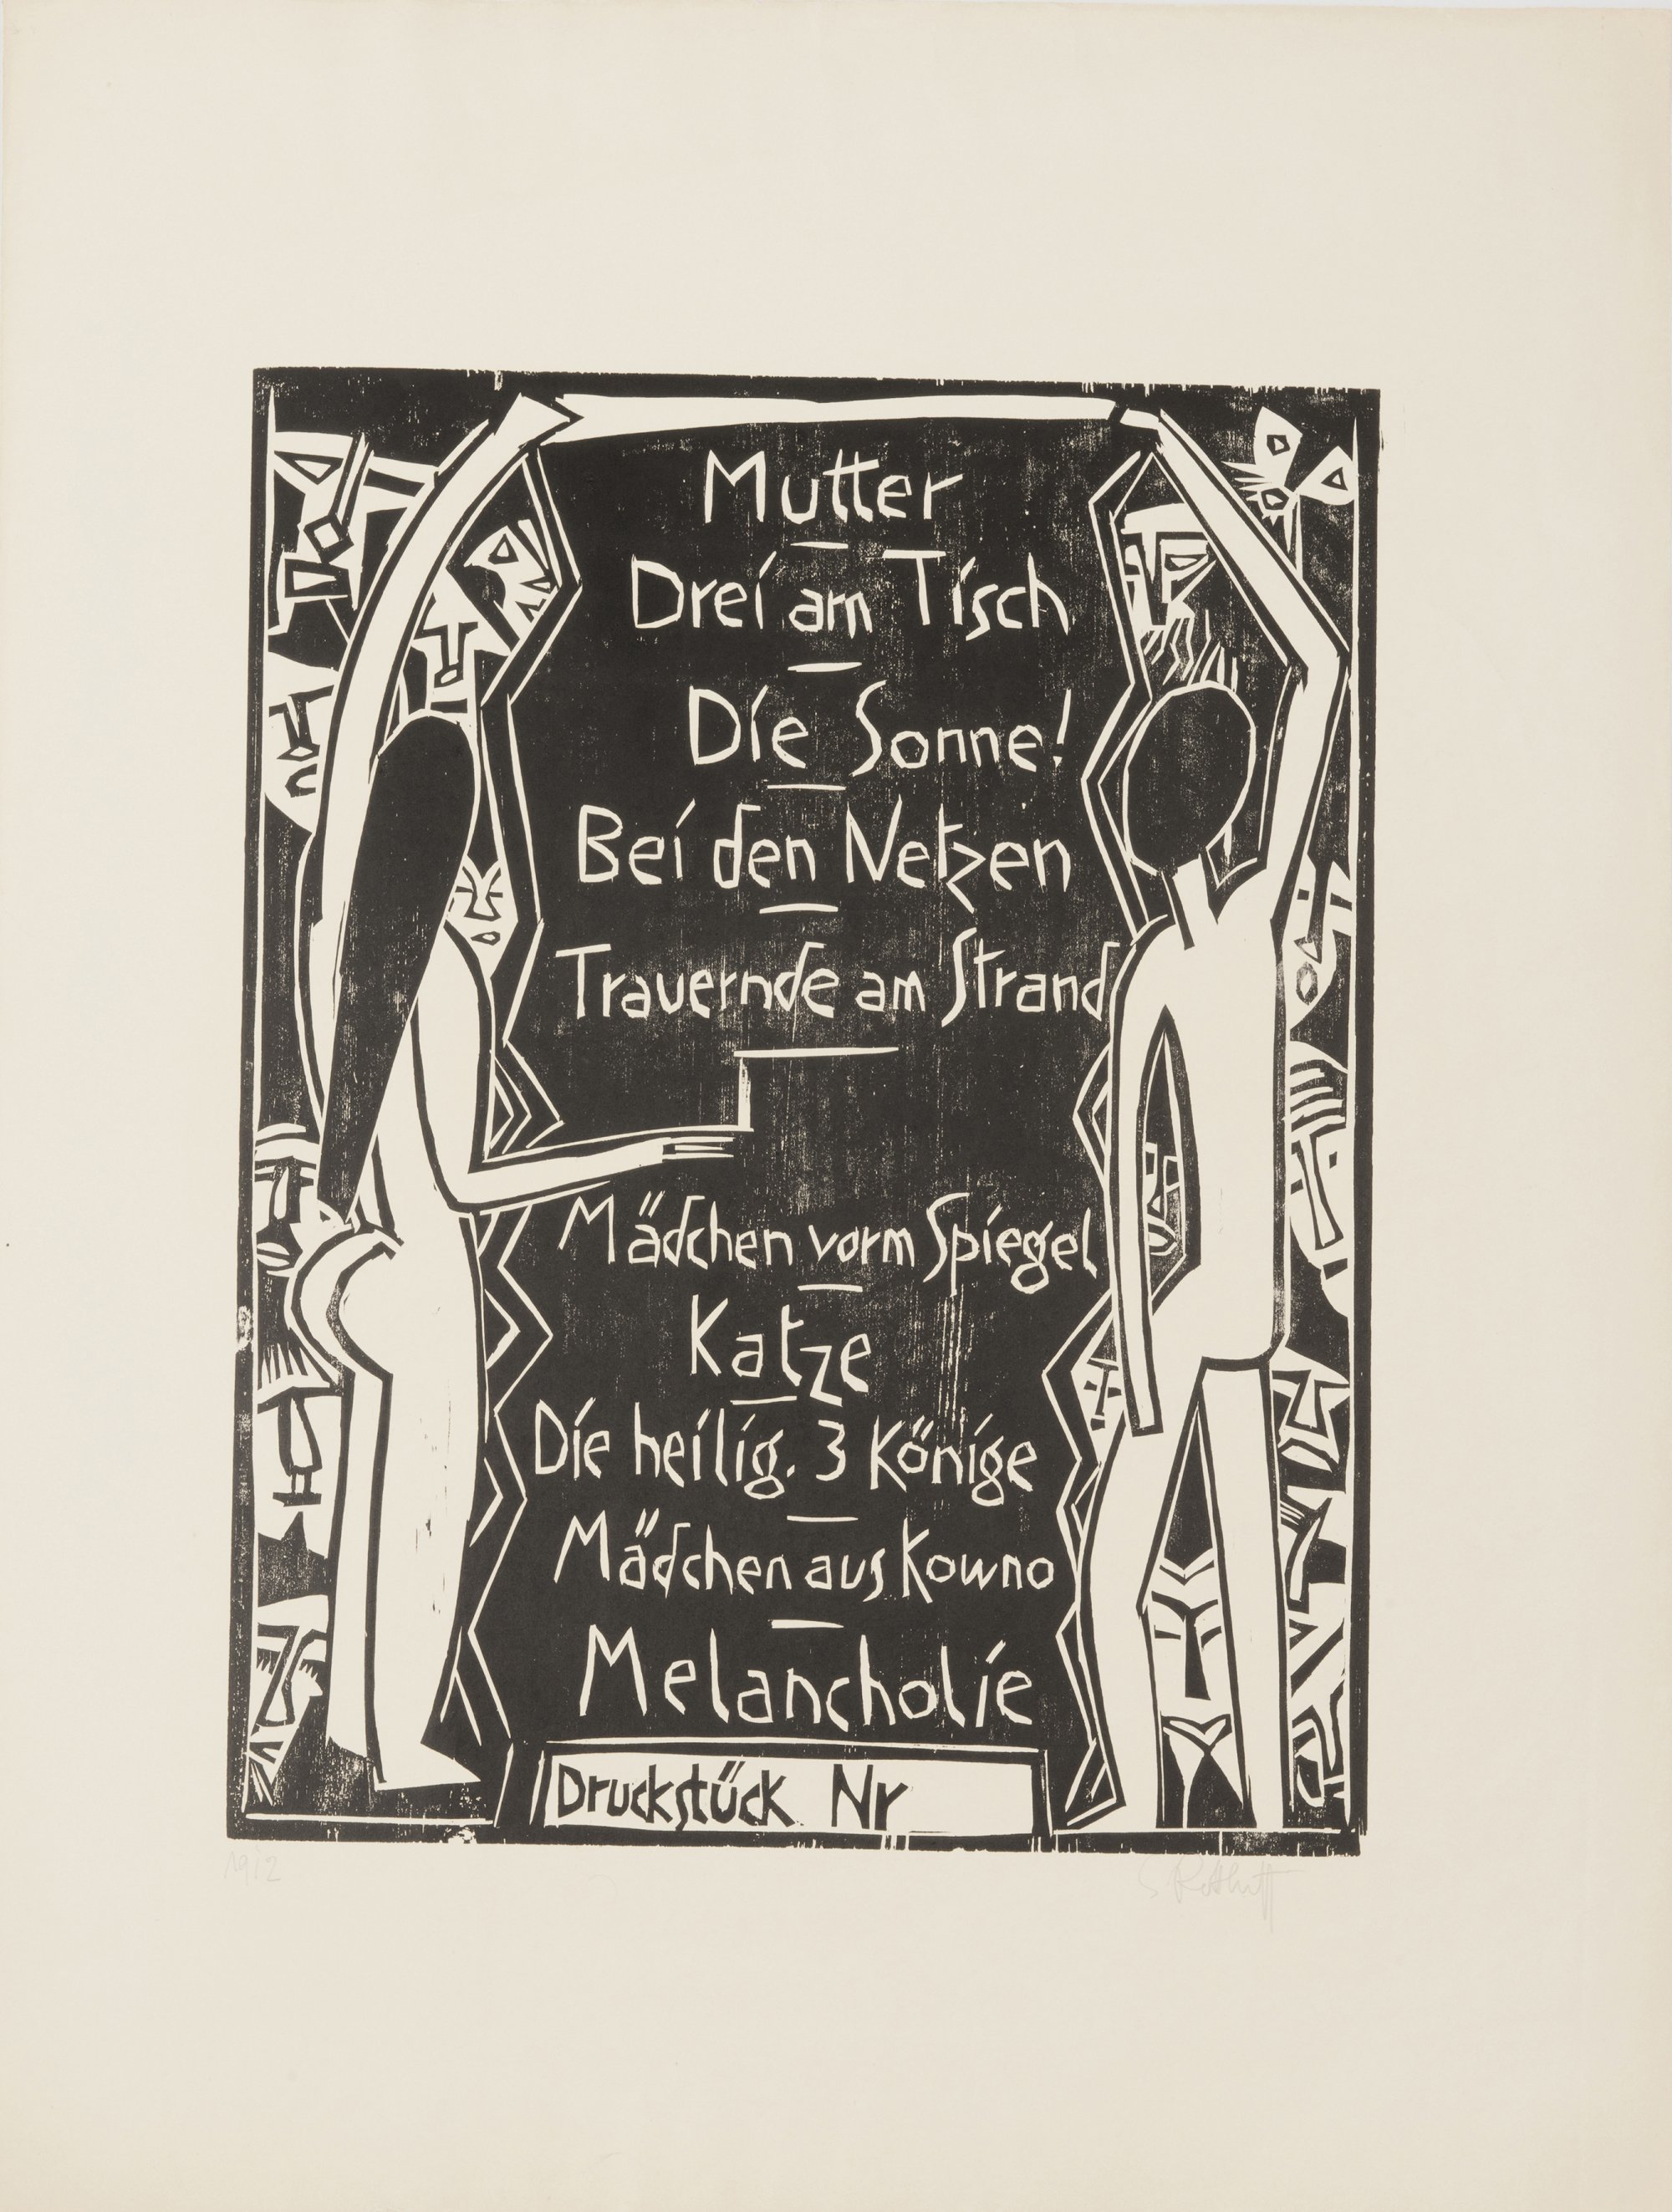 Mutter
Drei am Tisch
Die Sonne!
Bei den Netzen
Trauernde am Strand
Mädchen vorm Spiegel
Katze
Die heilig. 3 Könige
Mädchen aus Kowno
Melancholie
Druckstück Nr
S Rottluff